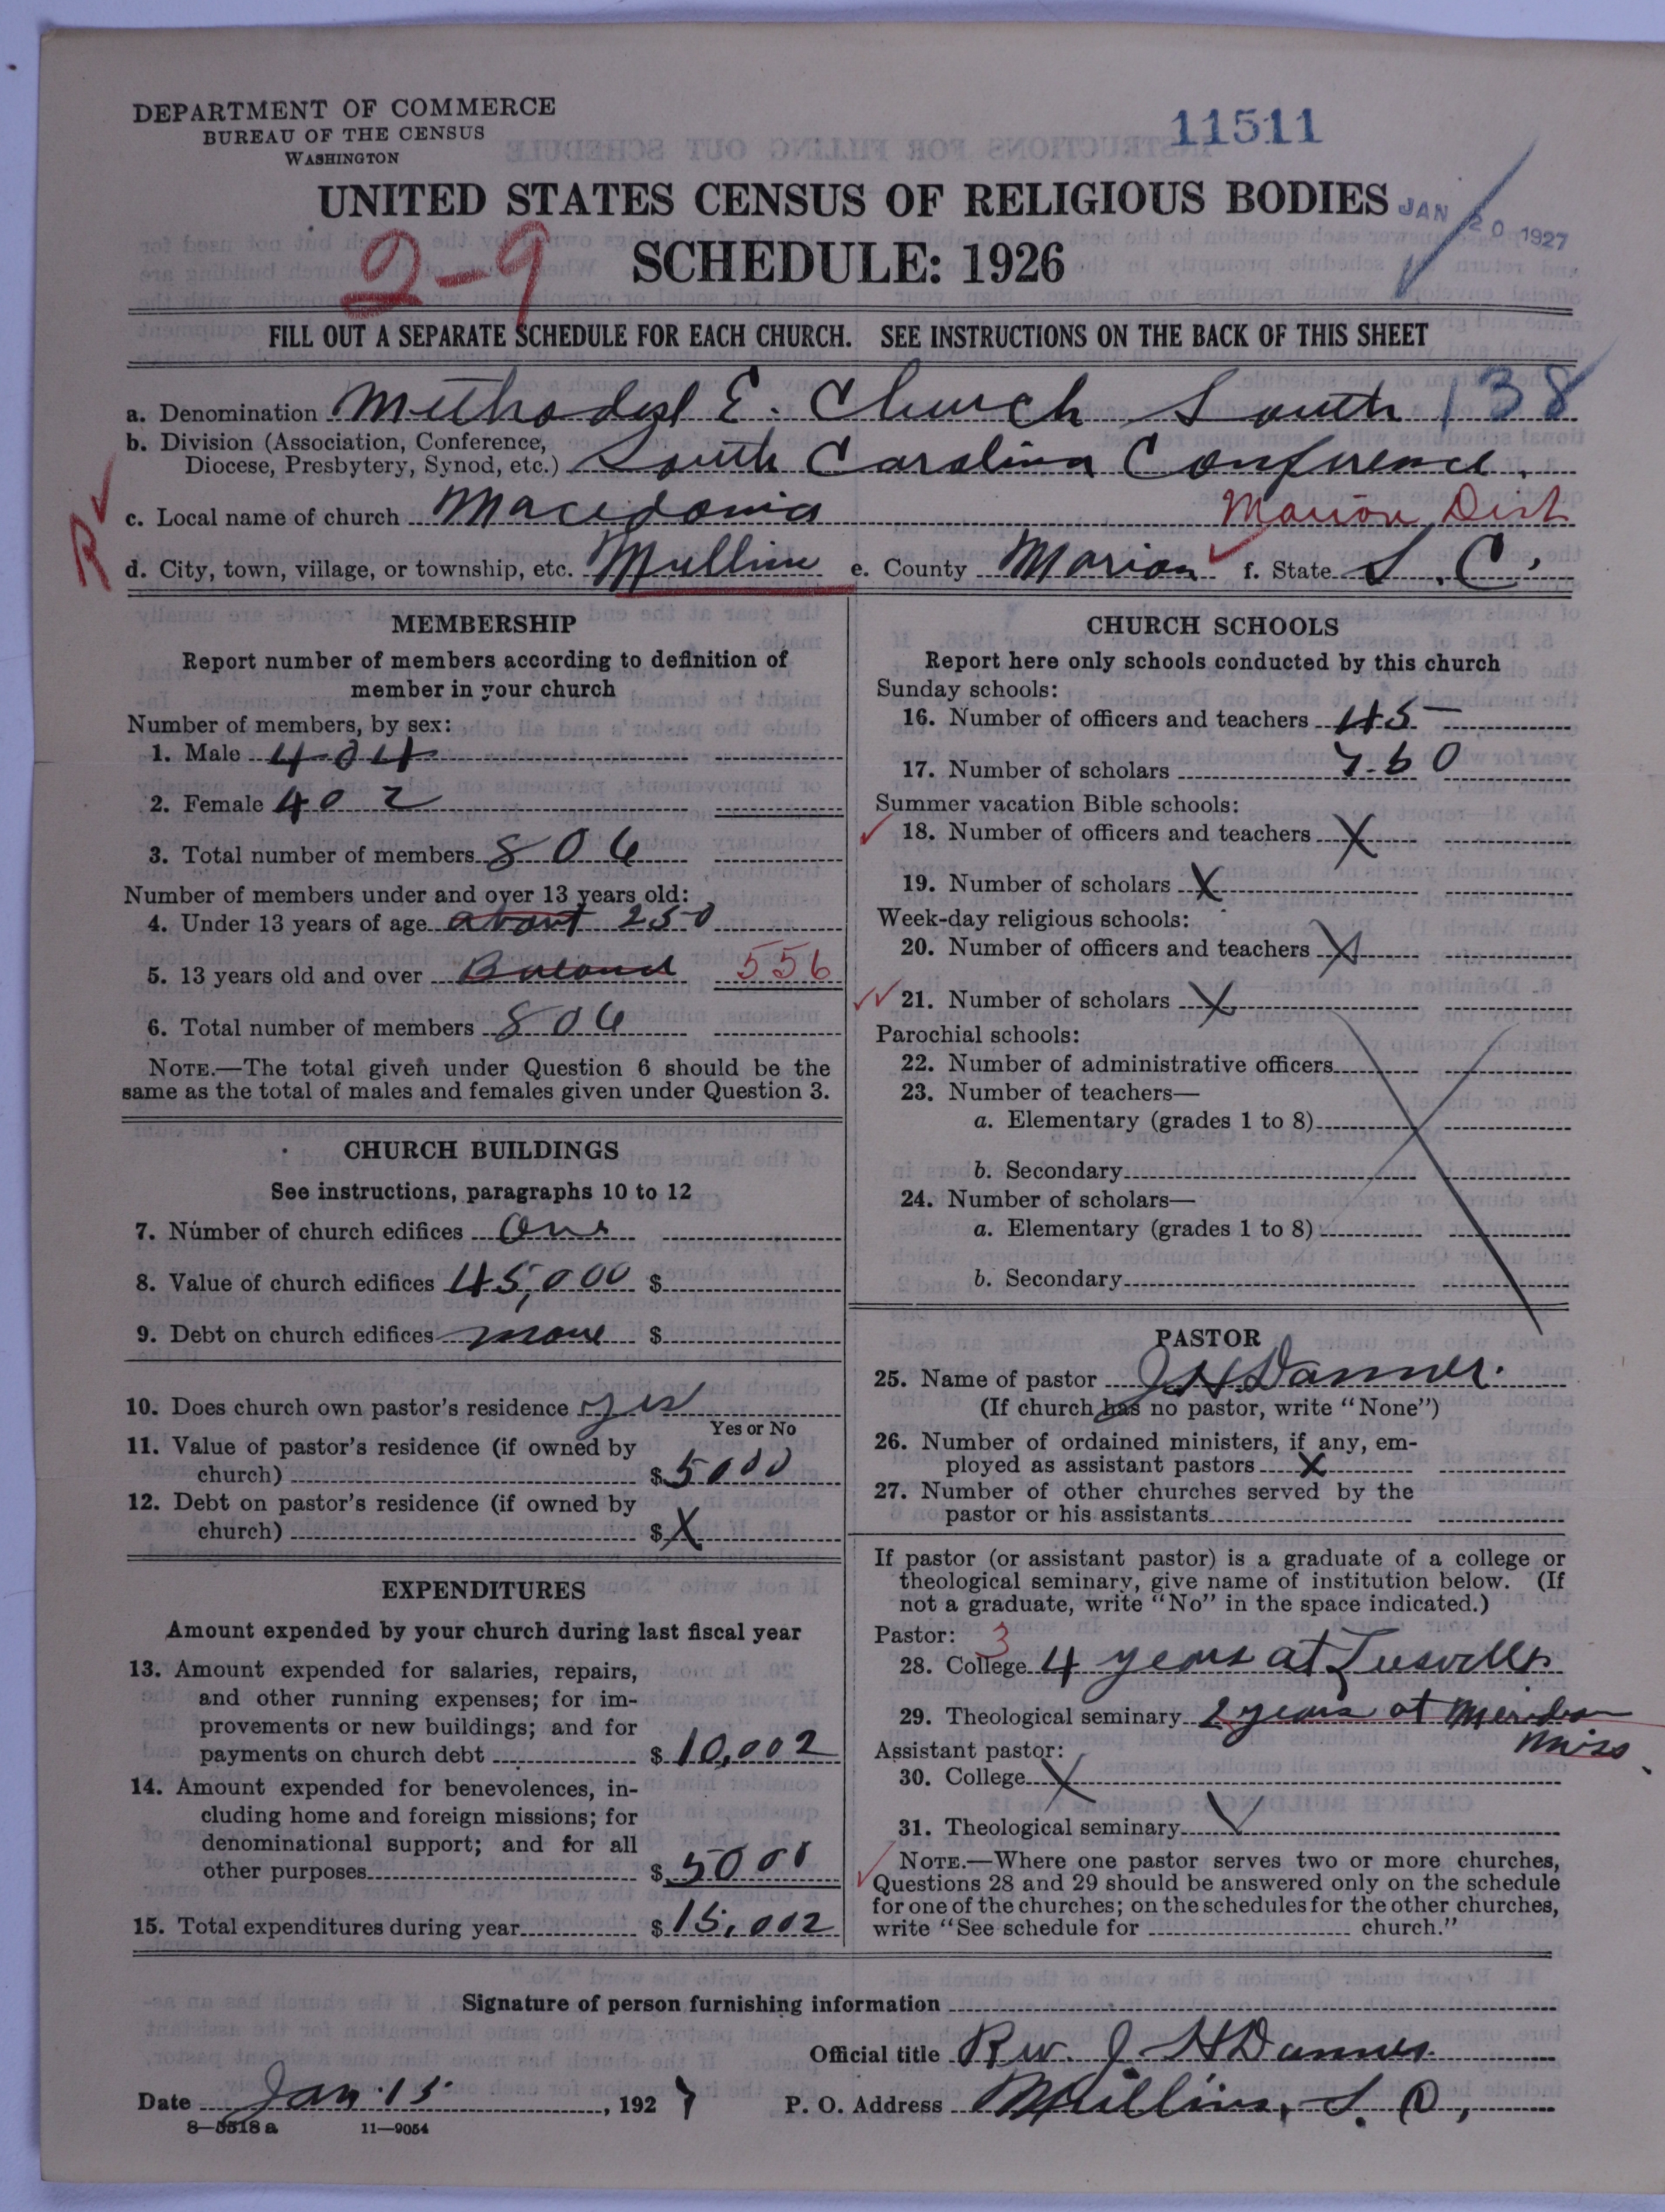 DEPARTMENT OF COMMERCE
BUREAU OF THE CENSUS
WASHINGTON
11511
UNITED STATES CENSUS OF RELIGIOUS BODIES
JAN 20 1927
SCHEDULE: 1926
2-9
FILL OUT A SEPARATE SCHEDULE FOR EACH CHURCH. SEE INSTRUCTIONS ON THE BACK OF THIS SHEET
a. Denomination Methodist E. Church South 138
b. Division (Association, Conference,
Diocese, Presbytery, Synod, etc.) South Carolina Conference.
c. Local name of church Macedonia Marion Dist
R
d. City, town, village, or township, etc. Mullins e. County Marion f. State S.C.
MEMBERSHIP
Report number of members according to definition of
member in your church
Number of members, by sex:
1. Male 404
2. Female 402
3. Total number of members 806
Number of members under and over 13 years old:
4. Under 13 years of age about 250
5. 13 years old and over Balance 556
6. Total number of members 806
NOTE.—The total given under Question 6 should be the
same as the total of males and females given under Question 3.
CHURCH BUILDINGS
See instructions, paragraphs 10 to 12
7. Number of church edifices One
8. Value of church edifices 45,000 $
9. Debt on church edifices none $
10. Does church own pastor's residence yes
Yes or No
11. Value of pastor's residence (if owned by
church) $ 5000
12. Debt on pastor's residence (if owned by
church) $ X
EXPENDITURES
Amount expended by your church during last fiscal year
13. Amount expended for salaries, repairs,
and other running expenses; for im-
provements or new buildings; and for
payments on church debt $ 10,002
14. Amount expended for benevolences, in-
cluding home and foreign missions; for
denominational support; and for all
other purposes $ 5000
15. Total expenditures during year $ 15,002
CHURCH SCHOOLS
Report here only schools conducted by this church
Sunday schools:
16. Number of officers and teachers 45
17. Number of scholars 760
Summer vacation Bible schools:
18. Number of officers and teachers X
19. Number of scholars X
Week-day religious schools:
20. Number of officers and teachers X
21. Number of scholars X
Parochial schools:
22. Number of administrative officers
23. Number of teachers—
a. Elementary (grades 1 to 8)
b. Secondary
24. Number of scholars—
a. Elementary (grades 1 to 8)
b. Secondary
PASTOR
25. Name of pastor J H Danner.
(If church has no pastor, write "None")
26. Number of ordained ministers, if any, em-
ployed as assistant pastors X
27. Number of other churches served by the
pastor or his assistants
If pastor (or assistant pastor) is a graduate of a college or
theological seminary, give name of institution below. (If
not a graduate, write "No" in the space indicated.)
Pastor: 3
28. College 4 years at
29. Theological seminary 2 years at Meridian
Miss.
Assistant pastor:
30. College X
31. Theological seminary
NOTE.—Where one pastor serves two or more churches,
Questions 28 and 29 should be answered only on the schedule
for one of the churches; on the schedules for the other churches,
write "See schedule for church."
Signature of person furnishing information
Official title Rev. J. H Danner.
Date Jan. 15, 1927 P. O. Address Mullins, S. C,
8—5518 a 11—9054